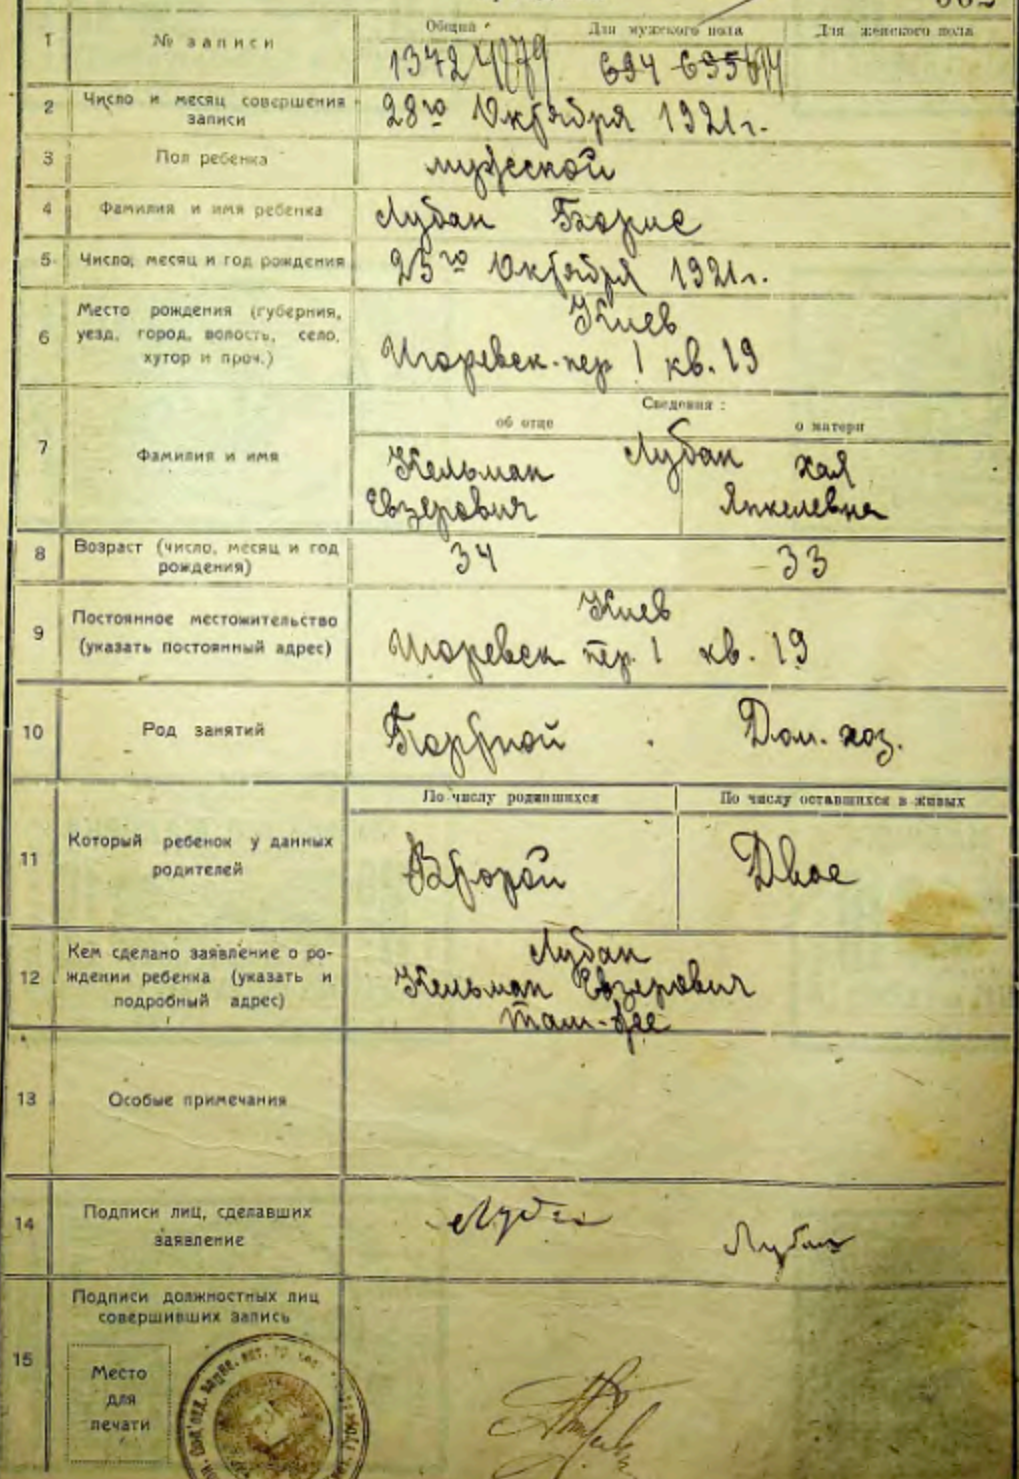 1 № записи Общий Для мужского пола Для женского пола
1372 694
2 Число и месяц совершения записи
28го Октября 1921 г.
3 Пол ребенка мужеской
4 Фамилия и имя ребенка Лубан Борис
5 Число, месяц и год рождения 25го Октября 1921 г.
6 Место рождения (губерния, уезд, город, волость, село, хутор и проч.)
Киев
Игоревск. пер 1 кв. 19
7 Фамилия и имя
Сведения:
об отце о матери
Лубан
Кельман Хая
Евзерович Янкелевна
8 Возраст (число, месяц и год рождения) 34 33
9 Постоянное местожительство (указать постоянный адрес)
Киев
Игоревск пер. 1 кв. 19
10 Род занятий Дом. хоз.
11 Который ребенок у данных родителей
По числу родившихся По числу оставшихся в живых
Второй Двое
12 Кем сделано заявление о рождении ребенка (указать и подробный адрес)
Лубан
Кельман Евзерович
там-же
13 Особые примечания
14 Подписи лиц, сделавших заявление
Лубан
15 Подписи должностных лиц совершивших запись
Место
для
печати